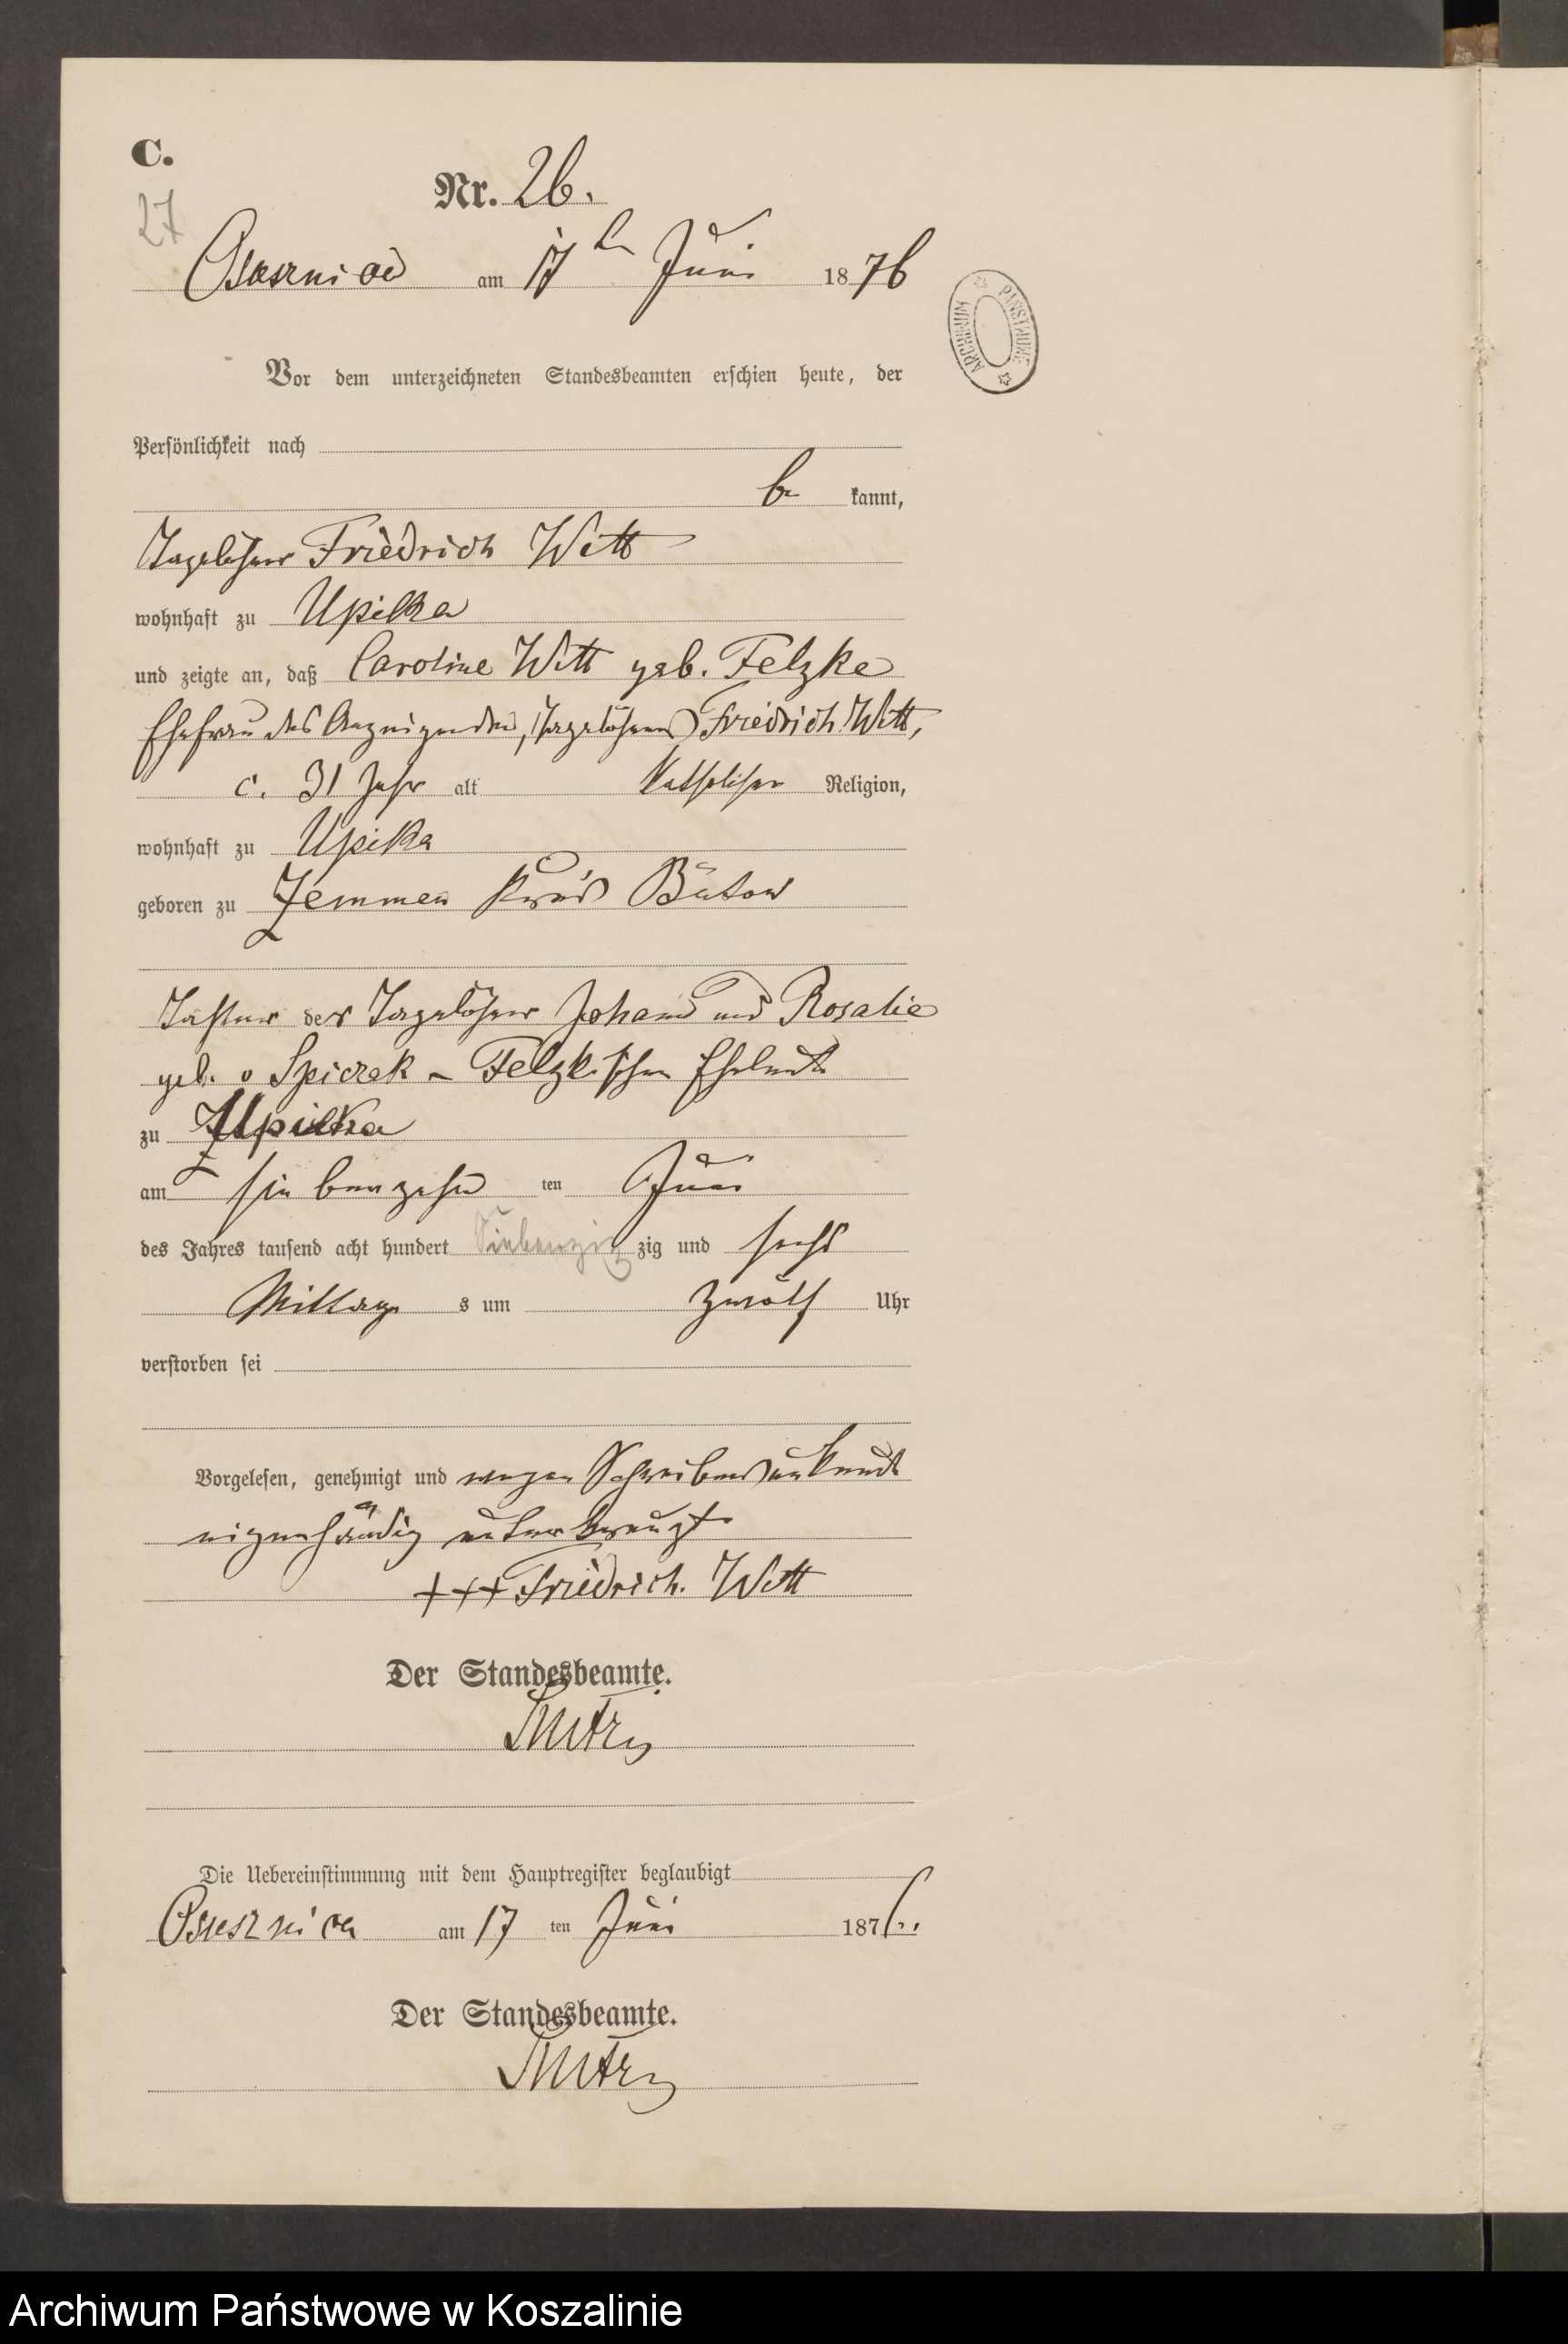 C.
Nr. 26.
27
Osusznica am 17 ten Juni 1876
ARCHIWUM PAŃSTWOWE
Vor dem unterzeichneten Standesbeamten erschien heute, der
Persönlichkeit nach
be kannt,
Tagelöhner Friedrich Witt
wohnhaft zu Upilka
und zeigte an, daß Caroline Witt geb. Felzke
Ehefrau des Anzeigenden, Tagelöhners Friedrich Witt,
c. 31 Jahr alt Katholischer Religion,
wohnhaft zu Upilka
geboren zu Zemmen Kreis Bütow
Tochter der Tagelöhner Johann und Rosalie
geb. v Spiczak - Felzkischen Eheleute
zu Upilka
am siebenzehn ten Juni
des Jahres tausend acht hundert Siebenzig zig und sechs
Mittag s um zwölf Uhr
verstorben sei
Vorgelesen, genehmigt und wegen Schreibensunkunde
eigenhändig unterkreuzt
+++ Friedrich Witt
Der Standesbeamte.
Die Uebereinstimmung mit dem Hauptregister beglaubigt
Osusznica am 17 ten Juni 1876.
Der Standesbeamte.
Archiwum Państwowe w Koszalinie